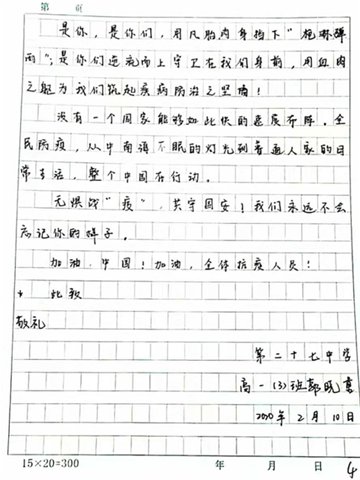 第 页
是你，是你们，用凡胎肉身挡下“枪林弹
雨”；是你们逆流而上守卫在我们身前，用血肉
之躯为我们筑起疫病防治之坚墙！
没有一个国家能够如此快的医质布阵。全
民防疫，从中南海不眠的灯光到普通人家的日
常生活，整个中国在行动。
无惧战“疫”，共守国安！我们永远不会
忘记你的样子。
加油，中国！加油，全体抗疫人员！
此致
敬礼
第二十七中学
高一（3）班郭晓
2020年2月10日
15×20=300 年 月 日 4